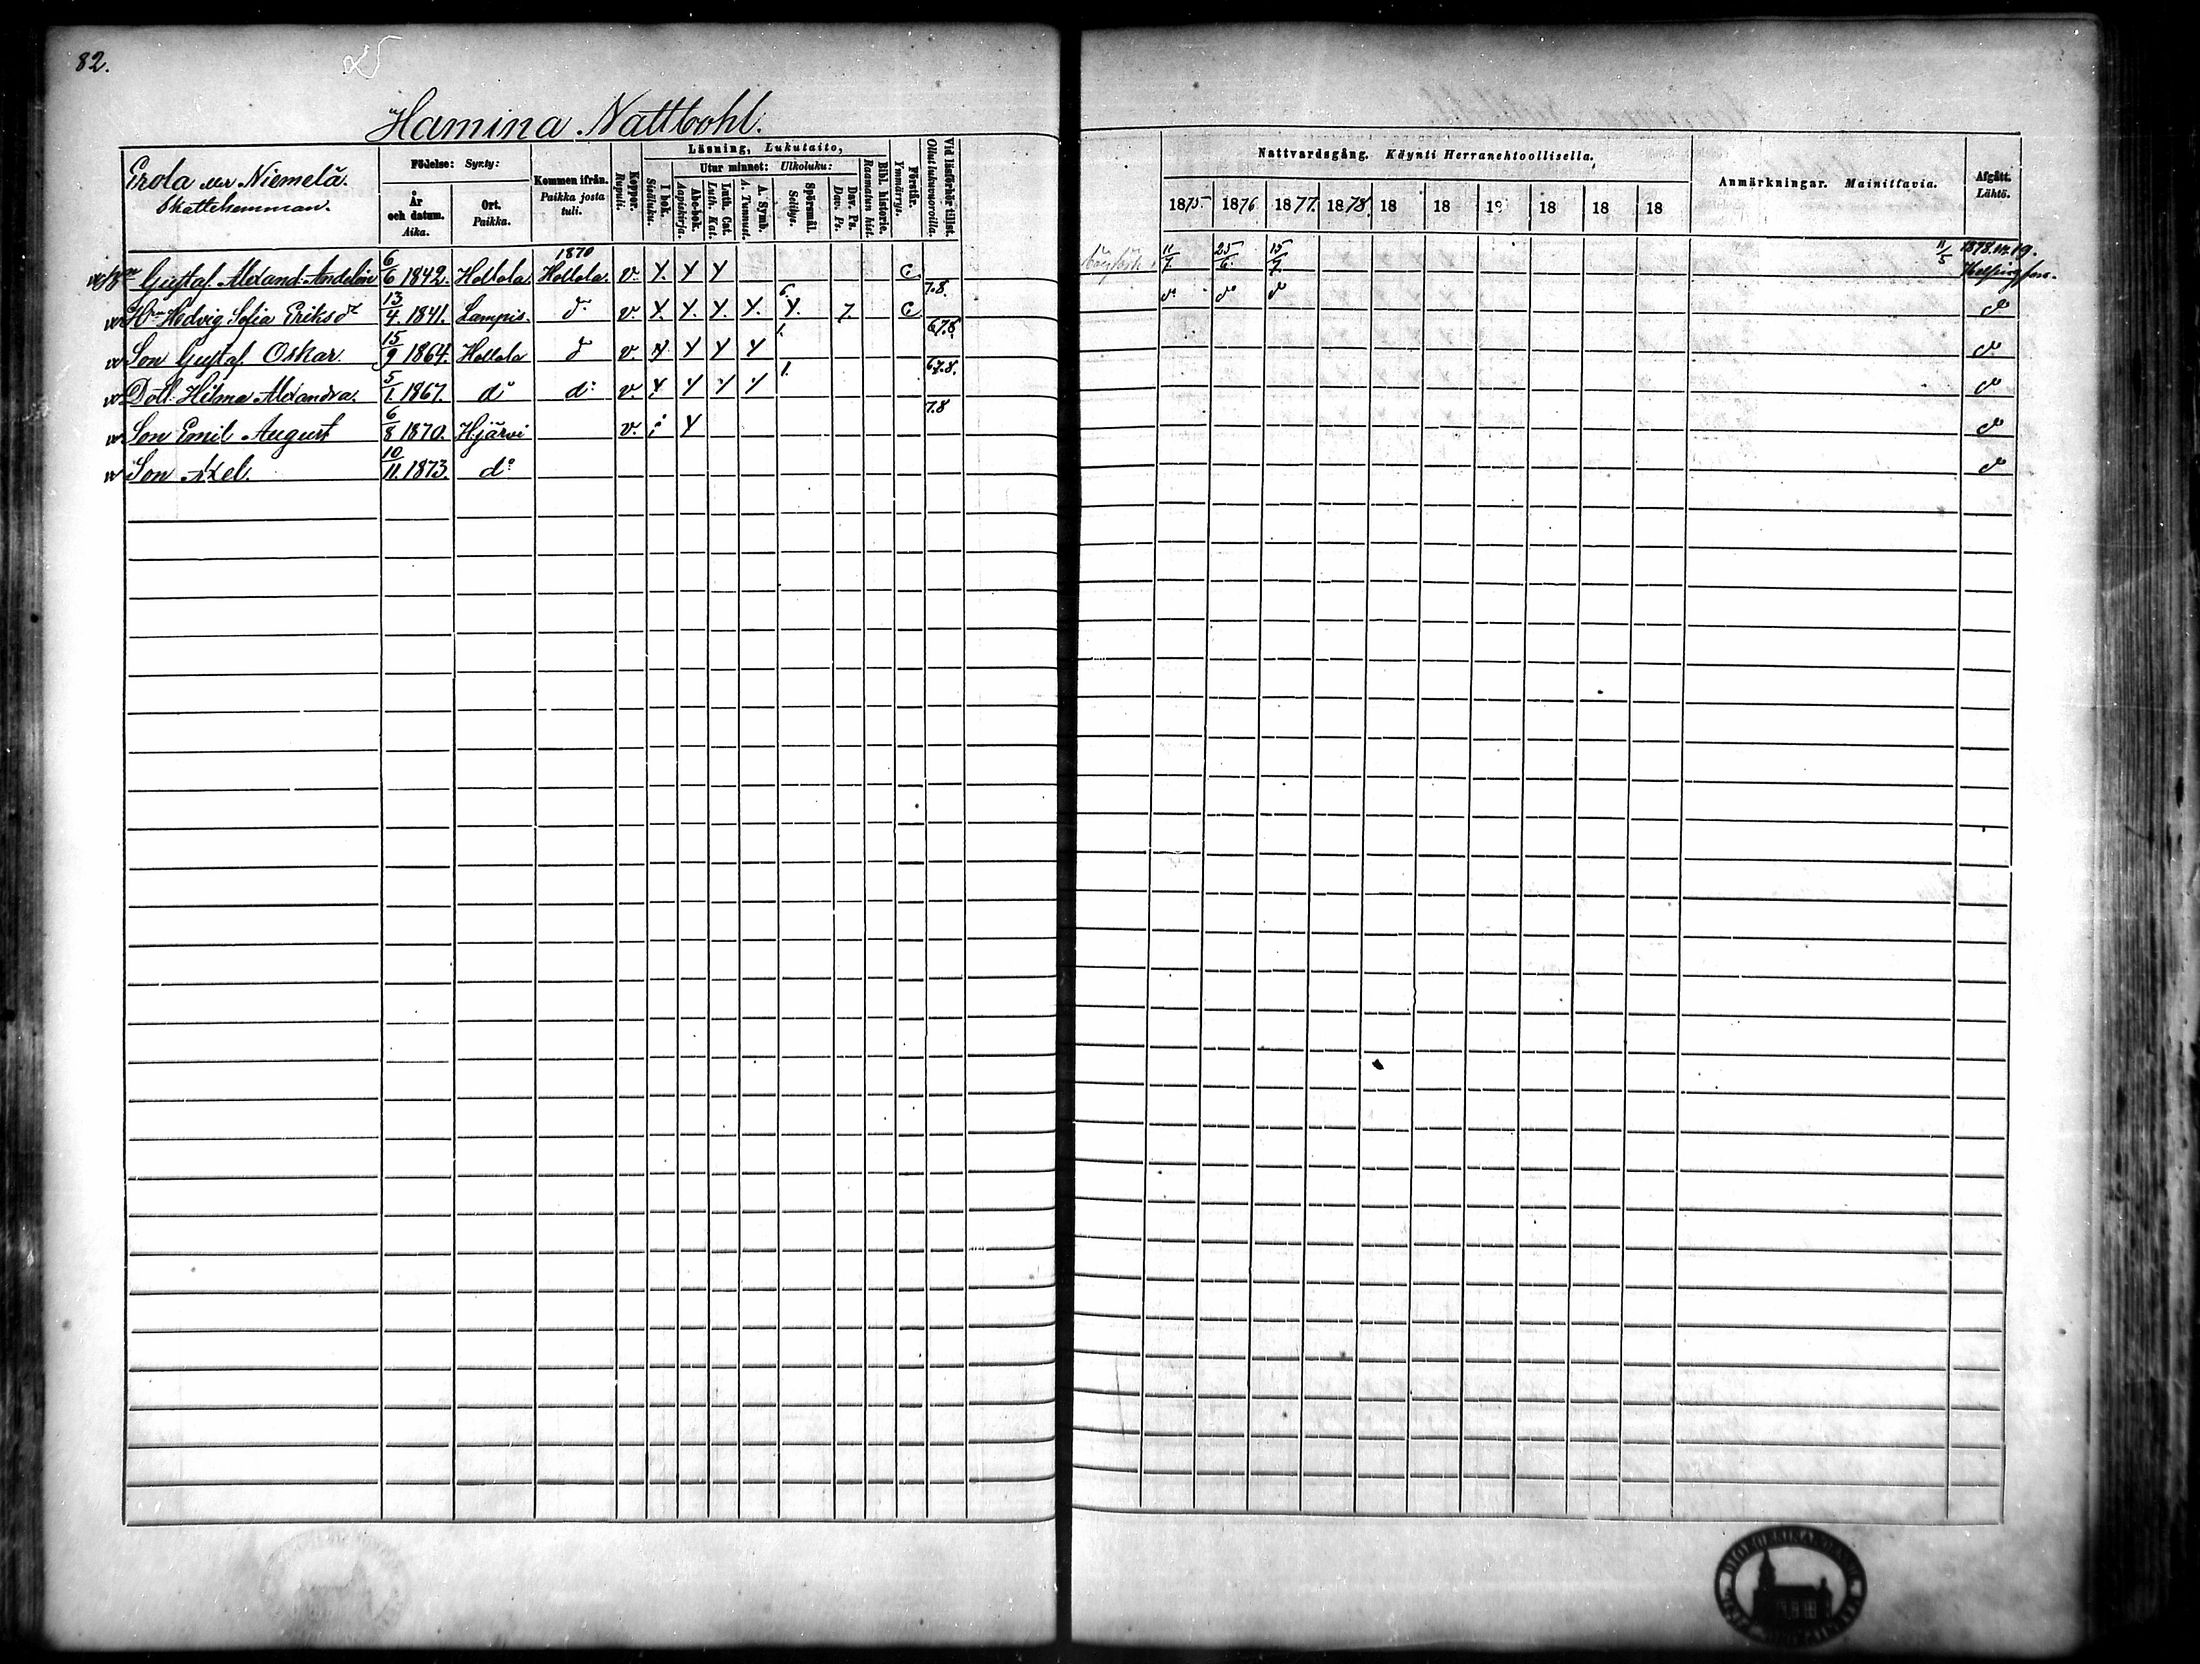 82.
Hamina Nattbohl.
Erola eller Niemelä.
Skattehemman.
Födelse: Synty:
År och datum. Aika.
Ort. Paikka.
Kommen ifrån. Paikka josta tuli.
Koppor. Rupuli.
Läsning, Lukutaito,
I bok. Sisäluku.
Utur minnet: Ulkoluku:
Abc-bok. Aapiskirja.
Luth. Cat. Luth. Kat.
A. Symb. A. Tunnust.
Spörsmål. Selitys.
Dav. Ps. Dav. Ps.
Bibl. historie. Raamatun hist.
Förstår. Ymmärrys.
Vid läsförhör tillst. Ollut lukuvuoroilla.
Nattvardsgång. Käynti Herranehtoollisella.
1875 1876 1877. 1878. 18 18 18 18 18 18
Anmärkningar. Mainittavia.
Afgått. Lähtö.
Gustaf Alexand. 6/6 1842. Hollola 1870 Hollola. v. Y. Y Y C 7.8. 11/7 25/6 15/7 11/5 1878. Helsingfors.
Hedvig Sofia Eriksdr 13/4 1841. Lampis. do v. Y. Y. Y. Y. 6. Y. 7 C 67.8. do do do do
Son Gustaf Oskar. 15/9 1864. Hollola do v. Y Y Y Y 1. 67.8. do
Dott. Hilma Alexandra. 5/1. 1867. do do v. 1. 7.8 do
Son Emil August 6/8 1870. Hjärvi v. Y do
Son Axel. 10/11. 1873. do do